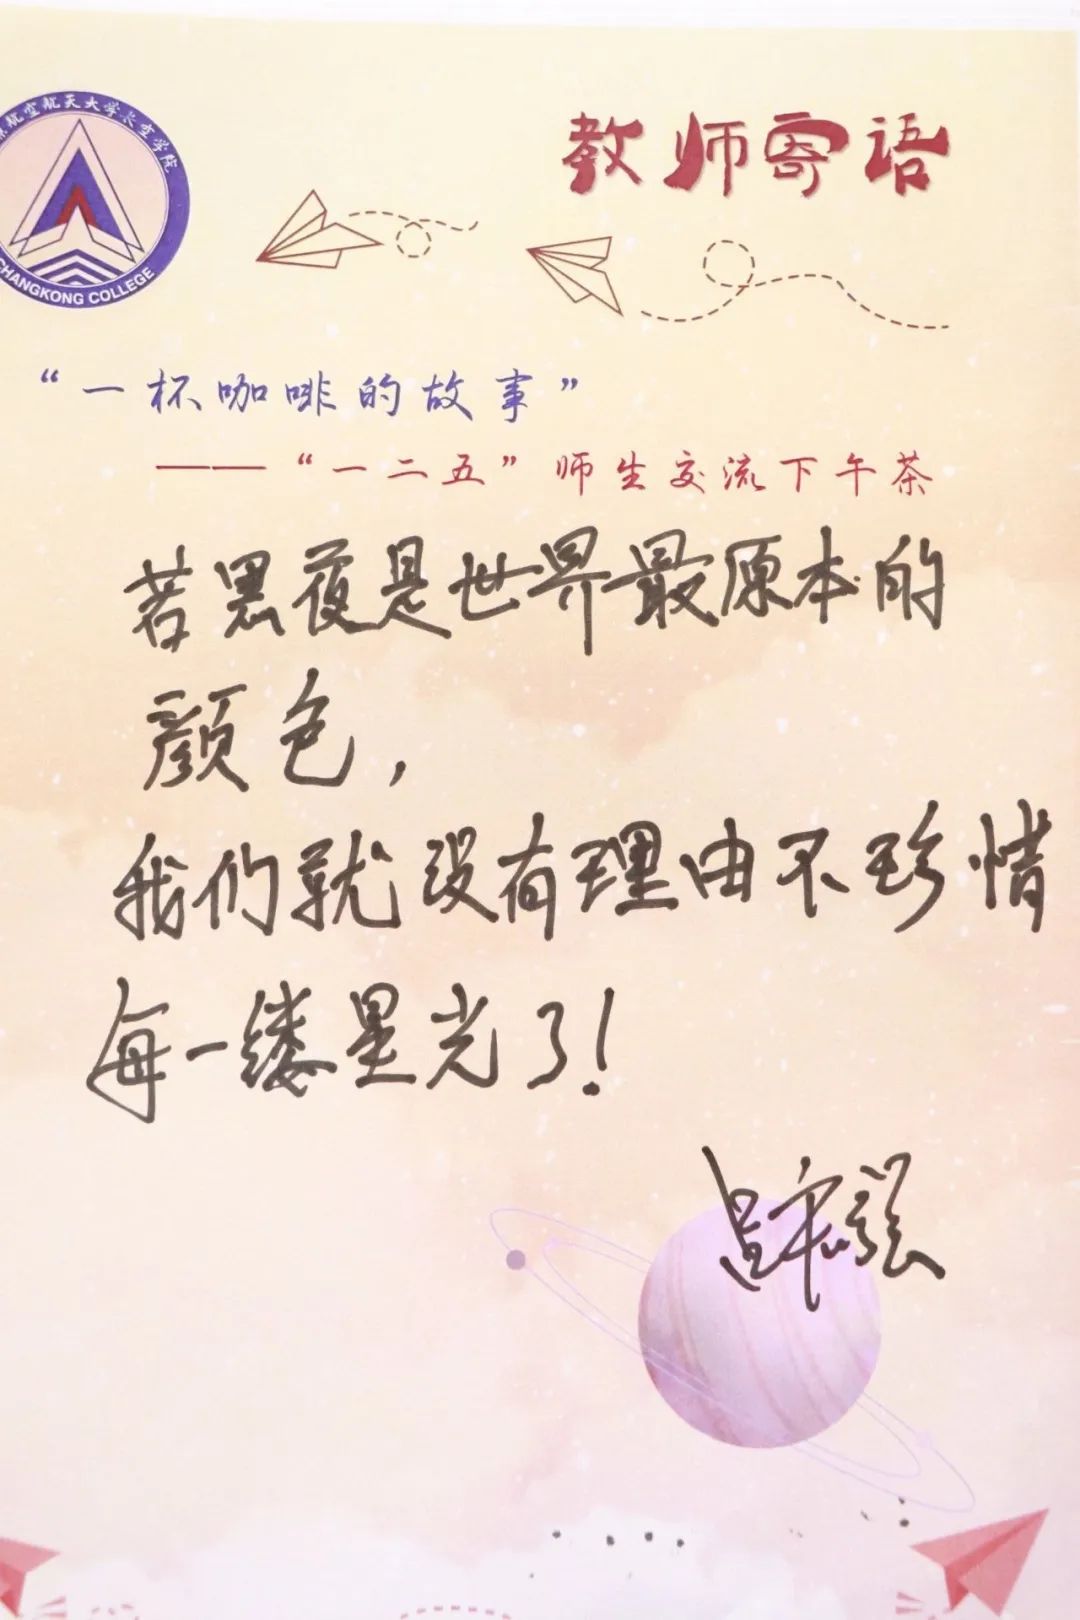 航空航天大学长空学院
CHANGKONG COLLEGE
教师寄语
“一杯咖啡的故事”
——“一二五”师生交流下午茶
若黑夜是世界最原本的
颜色，
我们就没有理由不珍惜
每一缕星光了！